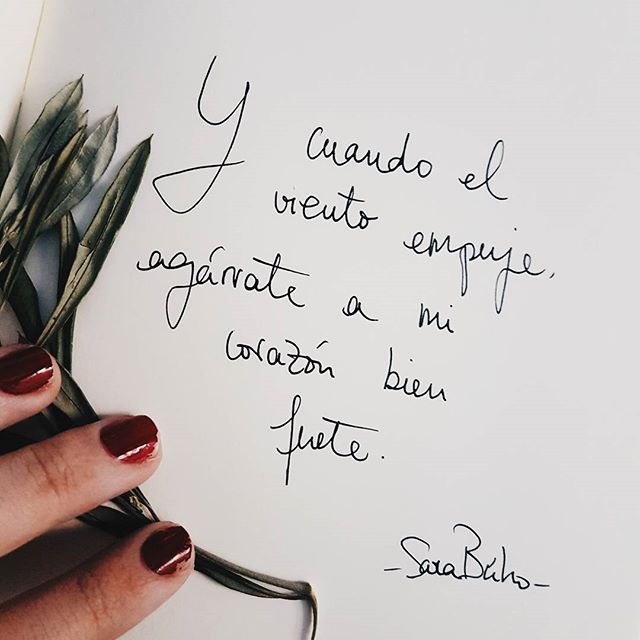 Y cuando el
viento empuje,
agárrate a mi
corazón bien
fuerte.
-Sara Búho-